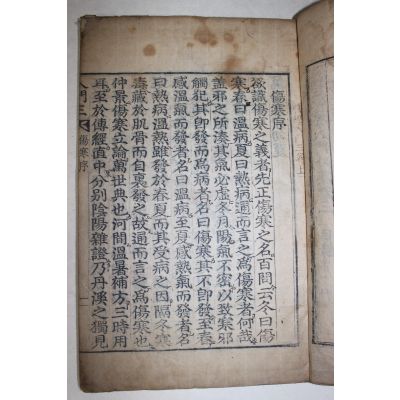 傷寒序
欲識傷寒之義者先正傷寒之名百問云冬曰傷
寒春曰溫病夏曰熱病通而言之爲傷寒者何哉
盖邪之所湊其氣必虛冬月陽氣不密以致寒邪
觸犯其即發而爲病者名曰傷寒其不即發至春
感溫氣而發者名曰溫病至夏感熱氣而發者名
曰熱病溫熱雖發於春夏而其受病之因隔冬寒
毒藏於肌骨而自裏發之故通而言之爲傷寒也
仲景傷寒立論萬世典也河間溫暑補方三時用
耳至於傳經直中分別陰陽雜證乃丹溪之獨見
門二
傷寒序